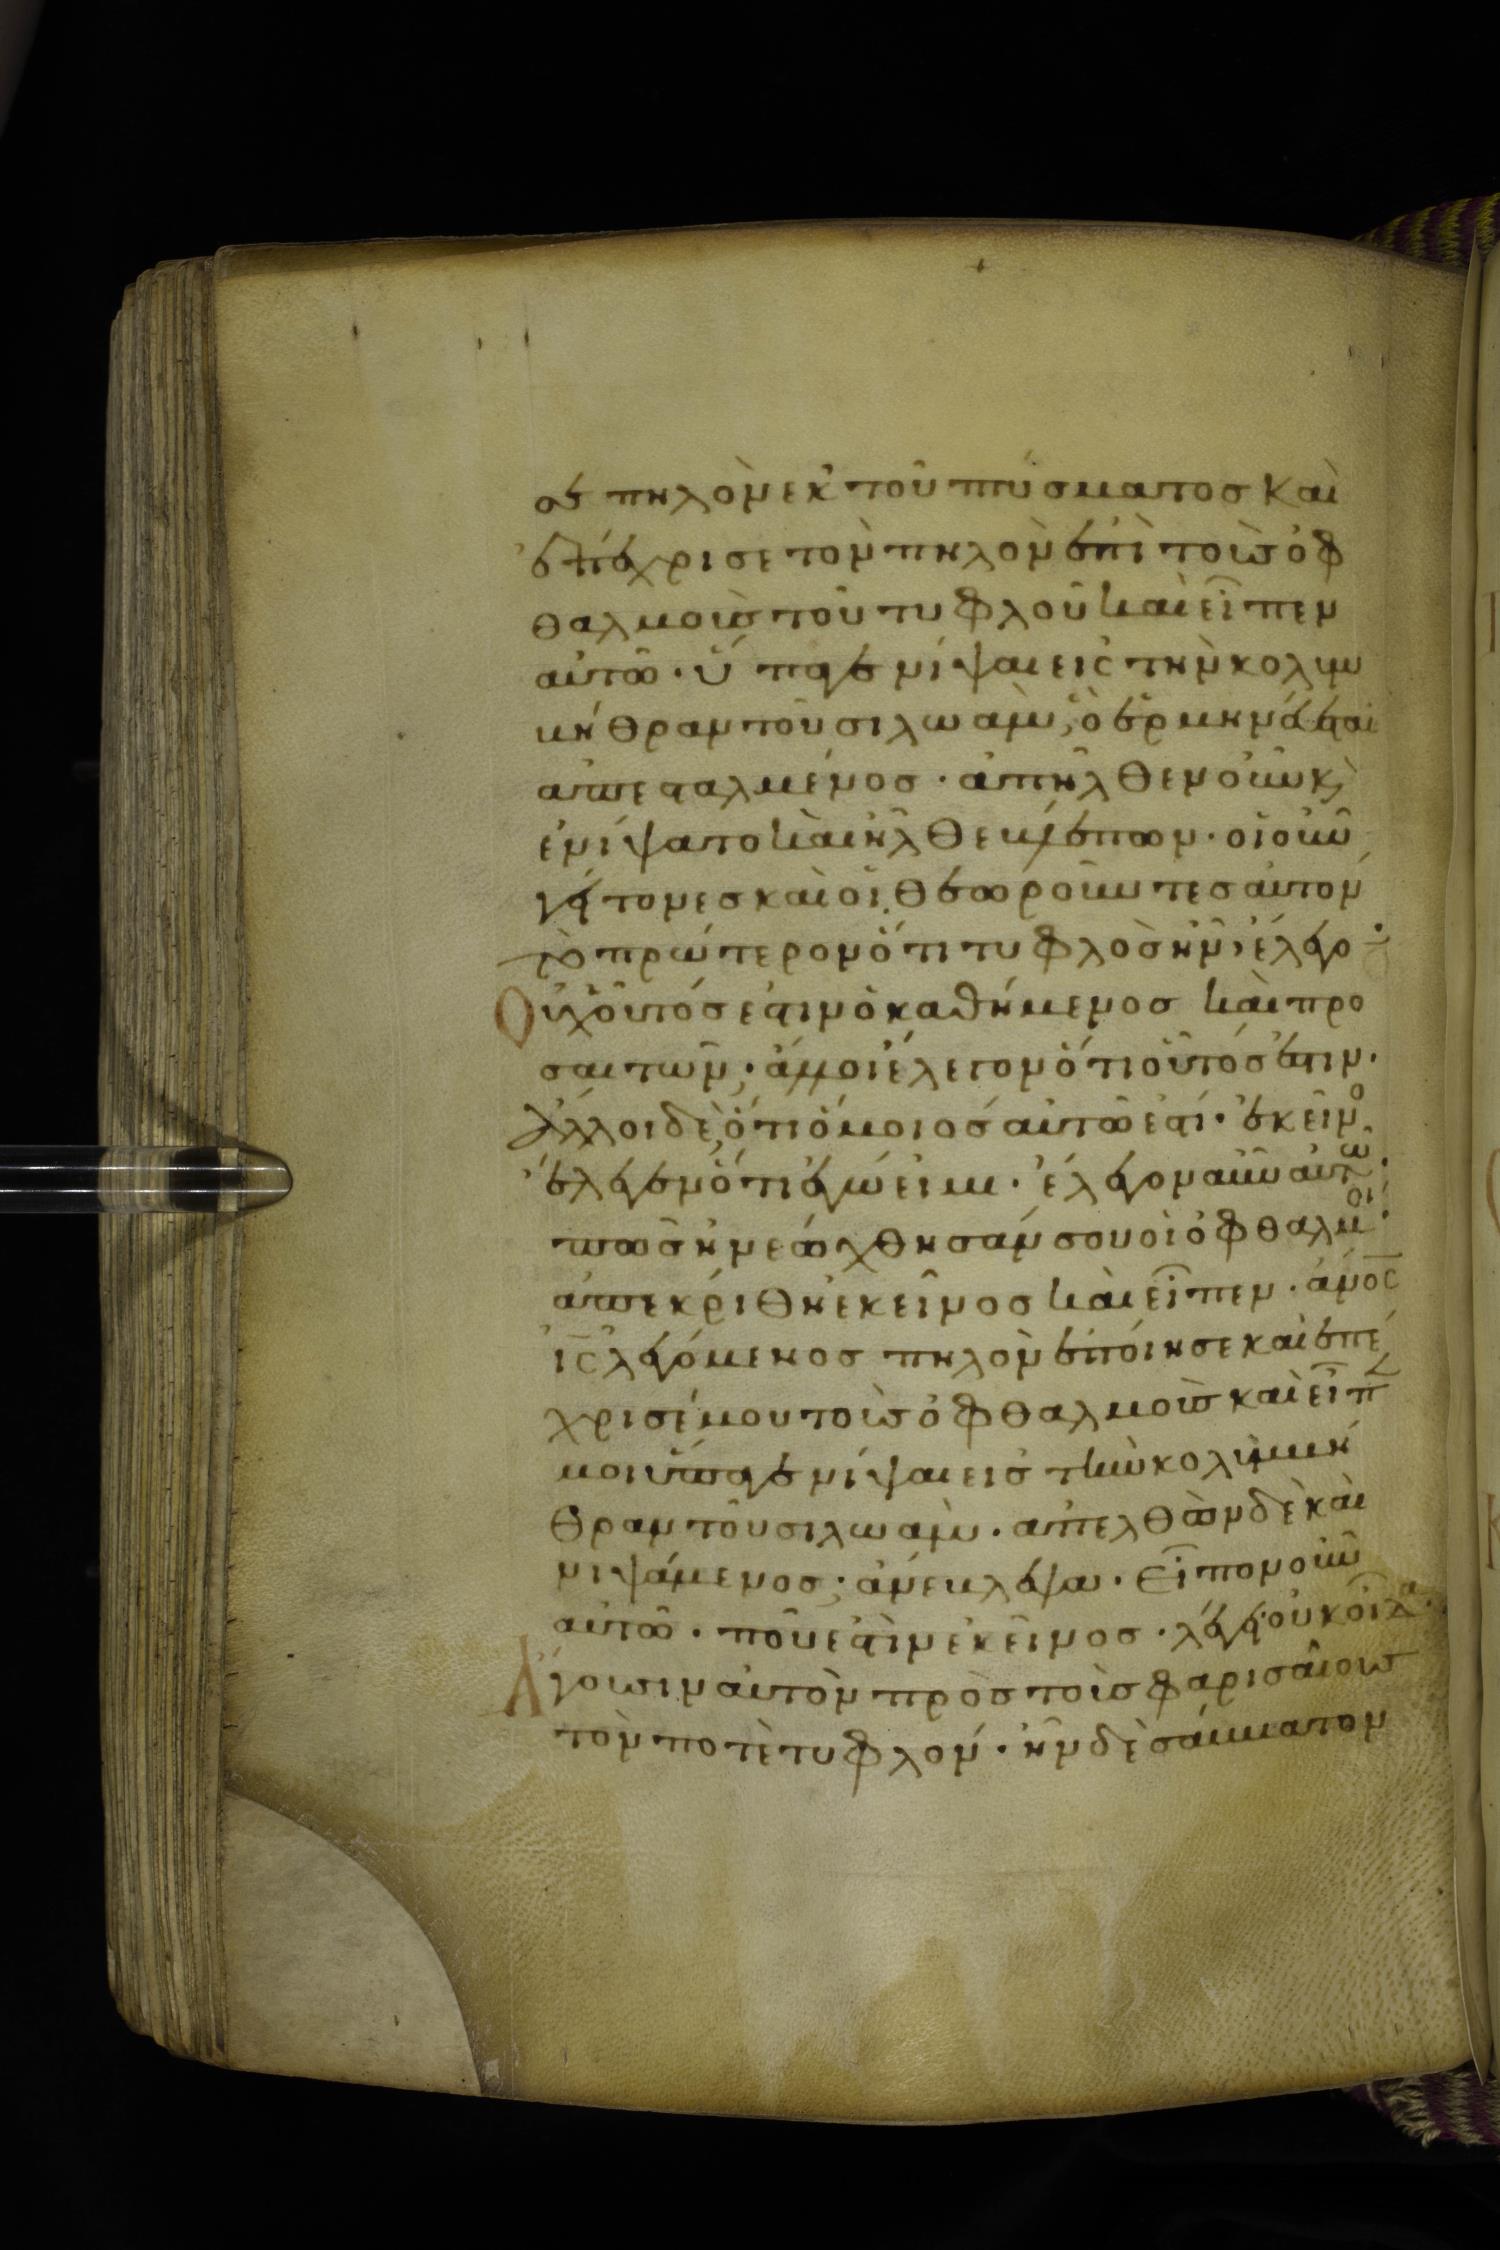 σε πηλὸν ἐκ τοῦ πτύσματος καὶ
ἐπέχρισε τὸν πηλὸν ἐπὶ τοὺς ὀφ
θαλμοὺς τοῦ τυφλοῦ καὶ εἶπεν
αὐτῶ· ὕπαγε νίψαι εἰς τὴν κολυμ
βήθραν τοῦ σιλωάμ, ὃ ἑρμηνεύεται
ἀπεσταλμένος· ἀπῆλθεν οὖν κ
ἐνίψατο καὶ ἦλθε βλέπων· οἱ οὖν
γείτονες καὶ οἱ θεωροῦντες αὐτὸν
τὸ πρώτερον ὅτι τυφλὸς ἦν, ἔλεγο
Οὐχ οὗτός ἐστιν ὁ καθήμενος καὶ προ
σαιτῶν; ἄλλοι ἔλεγον ὅτι οὗτός ἐστιν·
ἄλλοι δὲ ὅτι ὅμοιος αὐτῶ ἐστί· ἐκεῖνο
ἔλεγεν ὅτι ἐγώ εἰμι· ἔλεγον οὖν αὐτω·
πῶς ἠνεώχθησάν σου οἱ ὀφθαλμοί·
ἀπεκρίθη ἐκεῖνος καὶ εἶπεν· ἄνος
ις λεγόμενος πηλὸν ἐποίησε καὶ ἐπέ
χρισέ μου τοὺς ὀφθαλμοὺς καὶ εἶπ
μοι ὕπαγε νίψαι εἰς τὴν κολυμβή
θραν τοῦ σιλωάμ· ἀπελθὼν δὲ καὶ
νιψάμενος, ἀνέβλεψα· Εἶπον οὖν
αὐτῶ· ποῦ ἐστὶν ἐκεῖνος· λέγει· οὐκ οἶδα·
Ἄγουσιν αὐτὸν πρὸς τοὺς φαρισαίους
τὸν ποτὲ τυφλόν· ἦν δὲ σάββατον